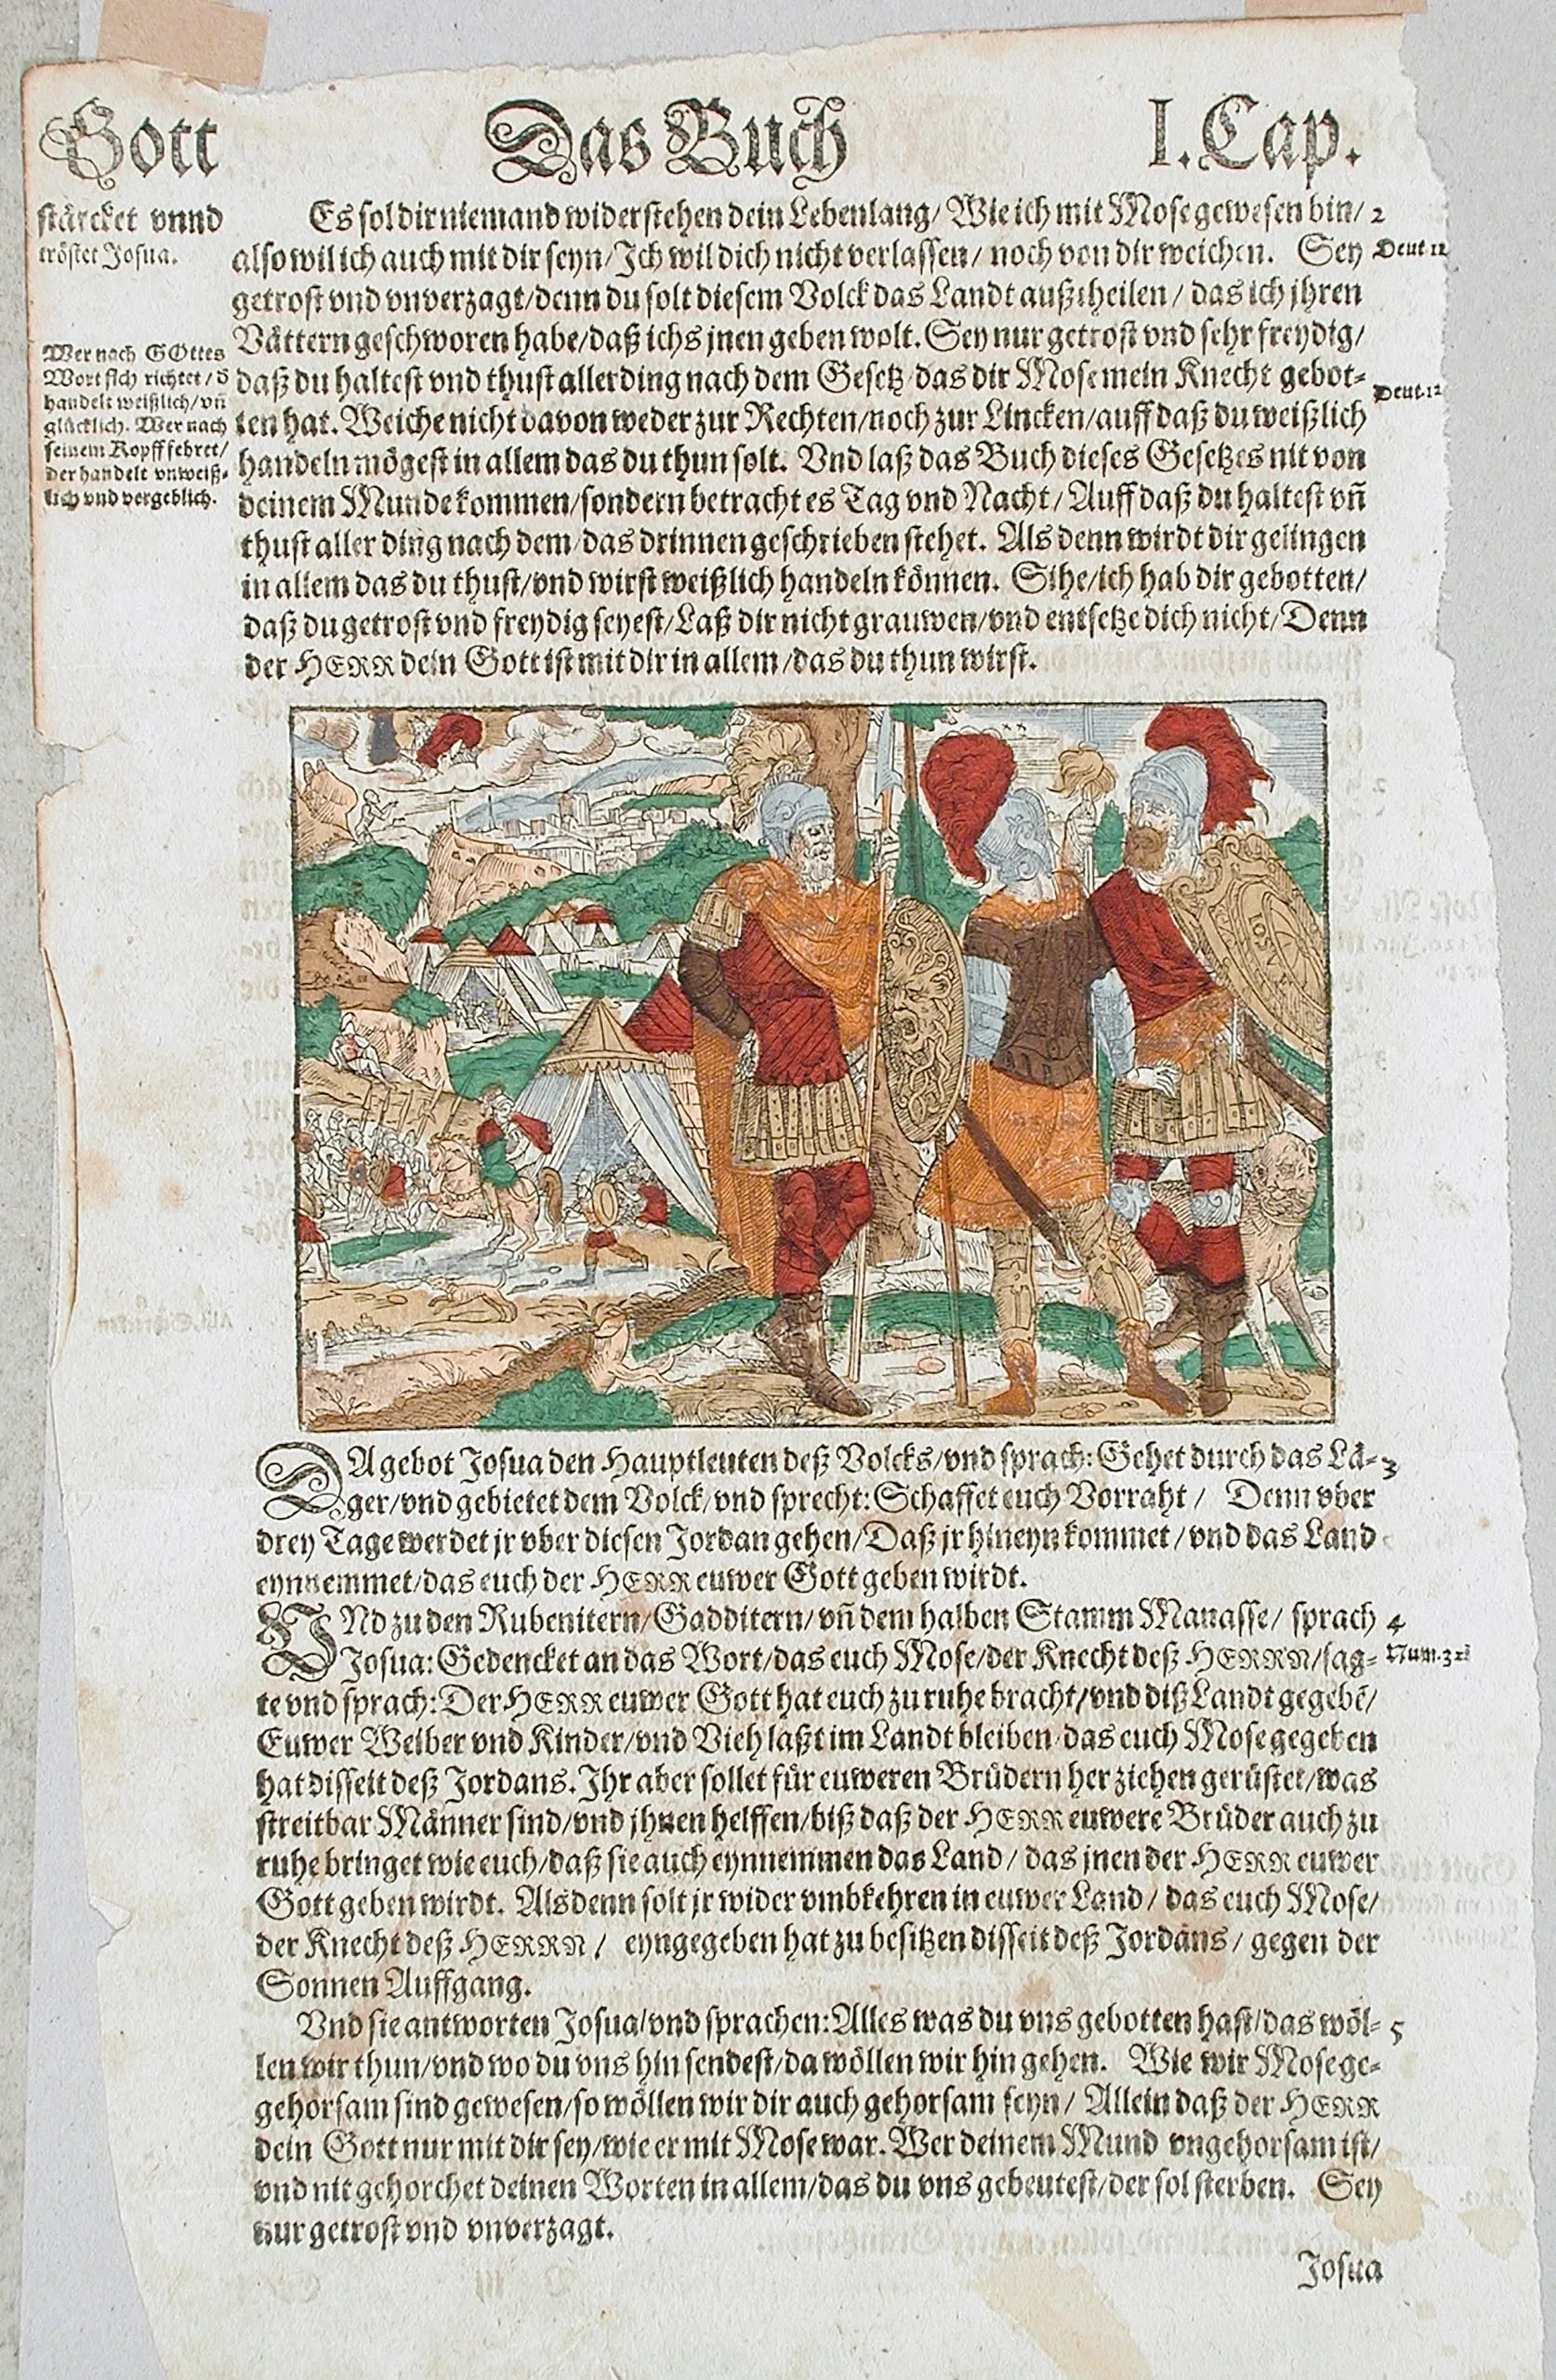 Gott Das Buch I. Cap.
stärcket vnnd
tröstet Josua.
Es sol dir niemand widerstehen dein Lebenlang/ Wie ich mit Mose gewesen bin/ 2
also wil ich auch mit dir seyn/ Ich wil dich nicht verlassen/ noch von dir weichen. Sey Deut 12
getrost vnd vnverzagt/ denn du solt diesem Volck das Landt außtheilen/ das ich jhren
Vättern geschworen habe/ daß ichs jnen geben wolt. Sey nur getrost vnd sehr freydig/
Wer nach GOttes
Wort sich richtet/ d
handelt weißlich/ vñ
glücklich. Wer nach
seinem Kopff fehret/
der handelt vnweiß-
lich vnd vergeblich.
daß du haltest vnd thust allerding nach dem Gesetz/ das dir Mose mein Knecht gebot- Deut. 12
ten hat. Weiche nicht davon weder zur Rechten/ noch zur Lincken/ auff daß du weißlich
handeln mögest in allem das du thun solt. Vnd laß das Buch dieses Gesetzes nit von
deinem Munde kommen/ sondern betracht es Tag vnd Nacht/ Auff daß du haltest vñ
thust aller ding nach dem/ das drinnen geschrieben stehet. Als denn wirdt dir gelingen
in allem das du thust/ vnd wirst weißlich handeln können. Sihe/ ich hab dir gebotten/
daß du getrost vnd freydig seyest/ Laß dir nicht grauwen/ vnd entsetze dich nicht/ Denn
der HERR dein Gott ist mit dir in allem/ das du thun wirst.
DA gebot Josua den Hauptleuten deß Volcks/ vnd sprach: Gehet durch das Lä- 3
ger/ vnd gebietet dem Volck/ vnd sprecht: Schaffet euch Vorraht/ Denn vber
drey Tage werdet jr vber diesen Jordan gehen/ Daß jr hineyn kommet/ vnd das Land
eynnemmet/ das euch der HERR euwer Gott geben wirdt.
VNd zu den Rubenitern/ Gadditern/ vñ dem halben Stamm Manasse/ sprach 4
Josua: Gedencket an das Wort/ das euch Mose/ der Knecht deß HERRN/ sag- Num. 32
te vnd sprach: Der HERR euwer Gott hat euch zu ruhe bracht/ vnd diß Landt gegebē/
Euwer Weiber vnd Kinder/ vnd Vieh laßt im Landt bleiben/ das euch Mose gegeben
hat disseit deß Jordans. Ihr aber sollet für euweren Brüdern her ziehen gerüstet/ was
streitbar Männer sind/ vnd jhnen helffen/ biß daß der HERR euwere Brüder auch zu
ruhe bringet wie euch/ daß sie auch eynnemmen das Land/ das jnen der HERR euwer
Gott geben wirdt. Alsdenn solt jr wider vmbkehren in euwer Land/ das euch Mose/
der Knecht deß HERRN/ eyngegeben hat zu besitzen disseit deß Jordans/ gegen der
Sonnen Auffgang.
Vnd sie antworten Josua/ vnd sprachen: Alles was du vns gebotten hast/ das wöl- 5
len wir thun/ vnd wo du vns hin sendest/ da wöllen wir hin gehen. Wie wir Mose ge-
gehorsam sind gewesen/ so wöllen wir dir auch gehorsam seyn/ Allein daß der HERR
dein Gott nur mit dir sey/ wie er mit Mose war. Wer deinem Mund vngehorsam ist/
vnd nit gehorchet deinen Worten in allem/ das du vns gebeutest/ der sol sterben. Sey
nur getrost vnd vnverzagt.
Josua